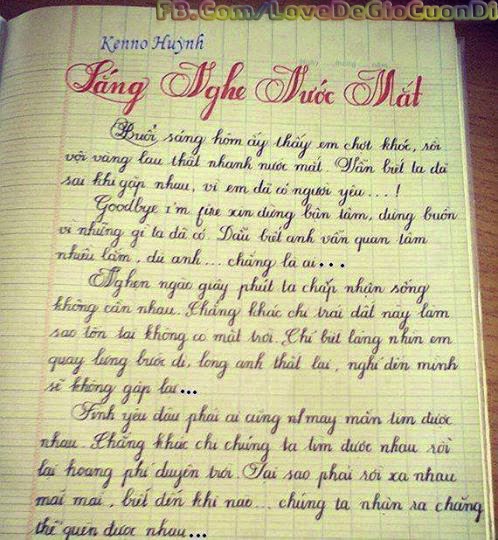 FB.Com/LoveDeGioCuonDi
Kenno Huỳnh
Lắng Nghe Nước Mắt
Buổi sáng hôm ấy thấy em chợt khóc, rồi
vội vàng lau thật nhanh nước mắt. Vẫn biết ta đã
sai khi gặp nhau, vì em đã có người yêu...!
Goodbye i'm fire xin đừng bận tâm, đừng buồn
vì những gì ta đã có. Dẫu biết anh vẫn quan tâm
nhiều lắm, dù anh... chẳng là ai...
Nghẹn ngào giây phút ta chấp nhận sống
không cần nhau. Chẳng khác chi trái đất này làm
sao tồn tại không có mặt trời. Chỉ biết lặng nhìn em
quay lưng bước đi, lòng anh thắt lại, nghĩ đến mình
sẽ không gặp lại...
Tình yêu đâu phải ai cũng n/ may mắn tìm được
nhau. Chẳng khác chi chúng ta tìm được nhau rồi
lại hoang phí duyên trời. Tại sao phải rời xa nhau
mãi mãi, biết đến khi nào... chúng ta nhận ra chẳng
thể quên được nhau...